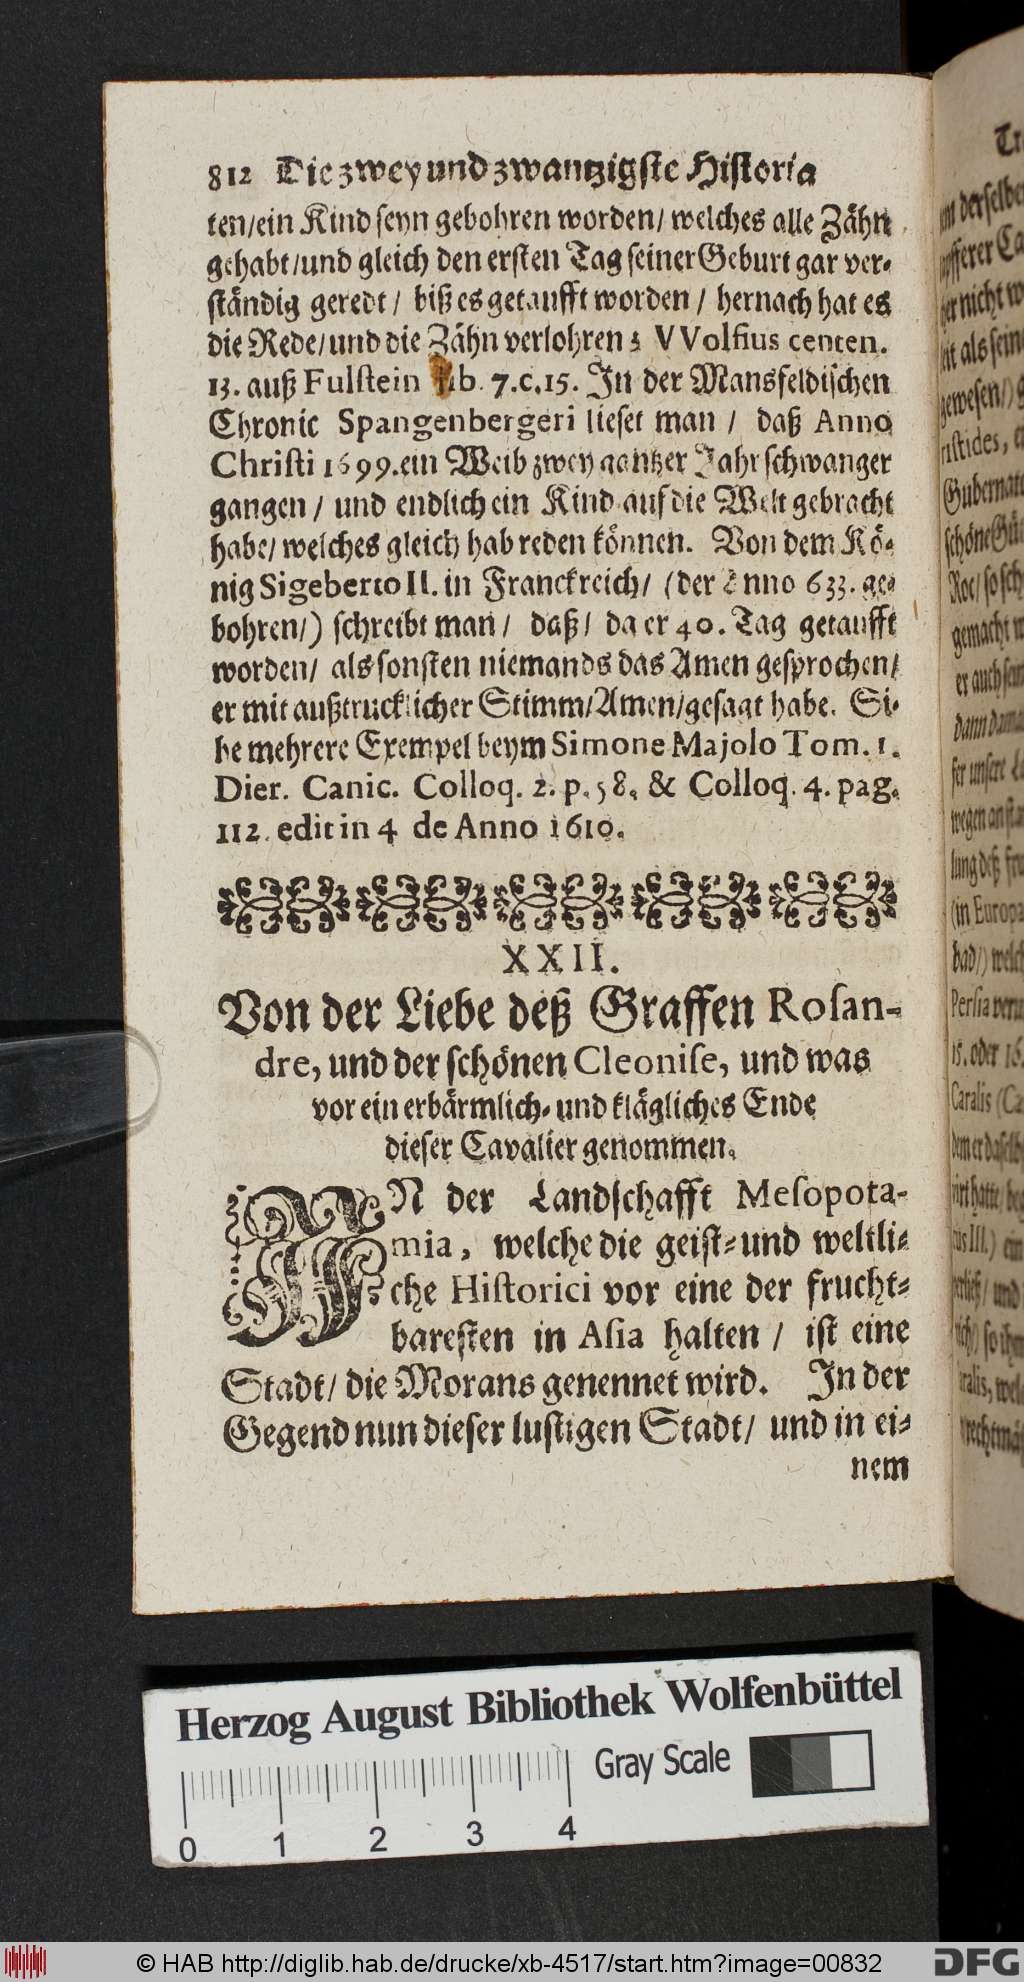 812 Die zwey und zwantzigste Historia
ten/ ein Kind seyn gebohren worden/ welches alle Zähn
gehabt/ und gleich den ersten Tag seiner Geburt gar ver-
ständig geredt/ biß es getaufft worden/ hernach hat es
die Rede/ und die Zähn verlohren; VVolfius centen.
13. auß Fulstein lib. 7. c. 15. In der Mansfeldischen
Chronic Spangenbergeri lieset man/ daß Anno
Christi 1699. ein Weib zwey gantzer Jahr schwanger
gangen/ und endlich ein Kind auf die Welt gebracht
habe/ welches gleich hab reden können. Von dem Kö-
nig Sigeberto II. in Franckreich/ (der Anno 633. ge-
bohren/) schreibt man/ daß/ da er 40. Tag getaufft
worden/ als sonsten niemands das Amen gesprochen/
er mit außtrucklicher Stimm/ Amen/ gesagt habe. Si-
he mehrere Exempel beym Simone Majolo Tom. 1.
Dier. Canic. Colloq. 2. p. 58. & Colloq. 4. pag.
112. edit in 4 de Anno 1610.
XXII.
Von der Liebe deß Graffen Rosan-
dre, und der schönen Cleonise, und was
vor ein erbärmlich- und klägliches Ende
dieser Cavalier genommen.
IN der Landschafft Mesopota-
mia, welche die geist- und weltli-
che Historici vor eine der frucht-
baresten in Asia halten/ ist eine
Stadt/ die Morans genennet wird. In der
Gegend nun dieser lustigen Stadt/ und in ei-
nem
Herzog August Bibliothek Wolfenbüttel
Gray Scale
0 1 2 3 4
© HAB http://diglib.hab.de/drucke/xb-4517/start.htm?image=00832
DFG